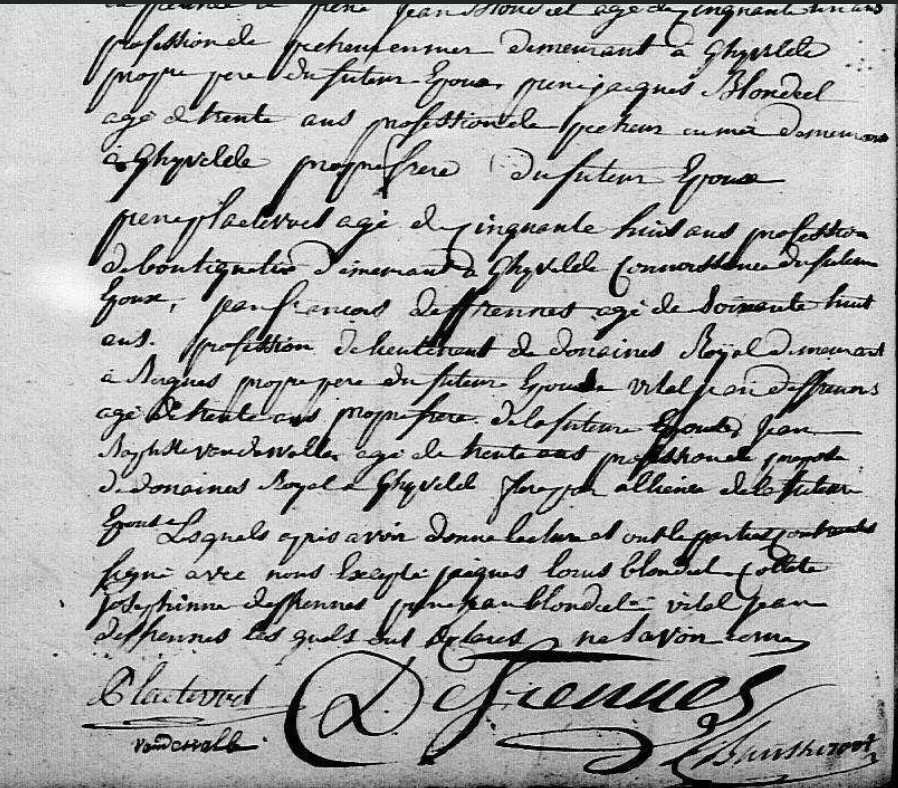 pierre jean Blondeel agé de cinquante un ans
profession de pecheur en mer demeurant à Ghyvelde
propre pere du futur Epoux, pierre jacques Blondeel
agé de trente ans profession de pecheur en mer demeurant
à Ghyvelde propre frere du futur Epoux
pierre plaetevoet agé de cinquante huit ans profession
de boutiquetier demeurant à Ghyvelde Connoissance du futeur
Epoux, jean francois deffrennes agé de Soixante huit
ans. profession de lieutenant de domaines Royal demeurant
à Bergues propre pere du future Epouse vital jean deffrennes
agé de trente ans propre frere de la future Epouse, Jean
Baptiste vandewalle agé de trente ans profession de preposé
de domaines Royal à Ghyvelde frere par allience de la future
Epouse Lesquels apris avoir donne lecture et ont le parties contractantes
signé avec nous Excepté jacques lovis blondeel Collete
josephinne deffrennes pierre jean blondeel vital jean
deffrennes les quels ont declarés ne savoir ecrire
Plaetevoet DeFrennes
vandewalle